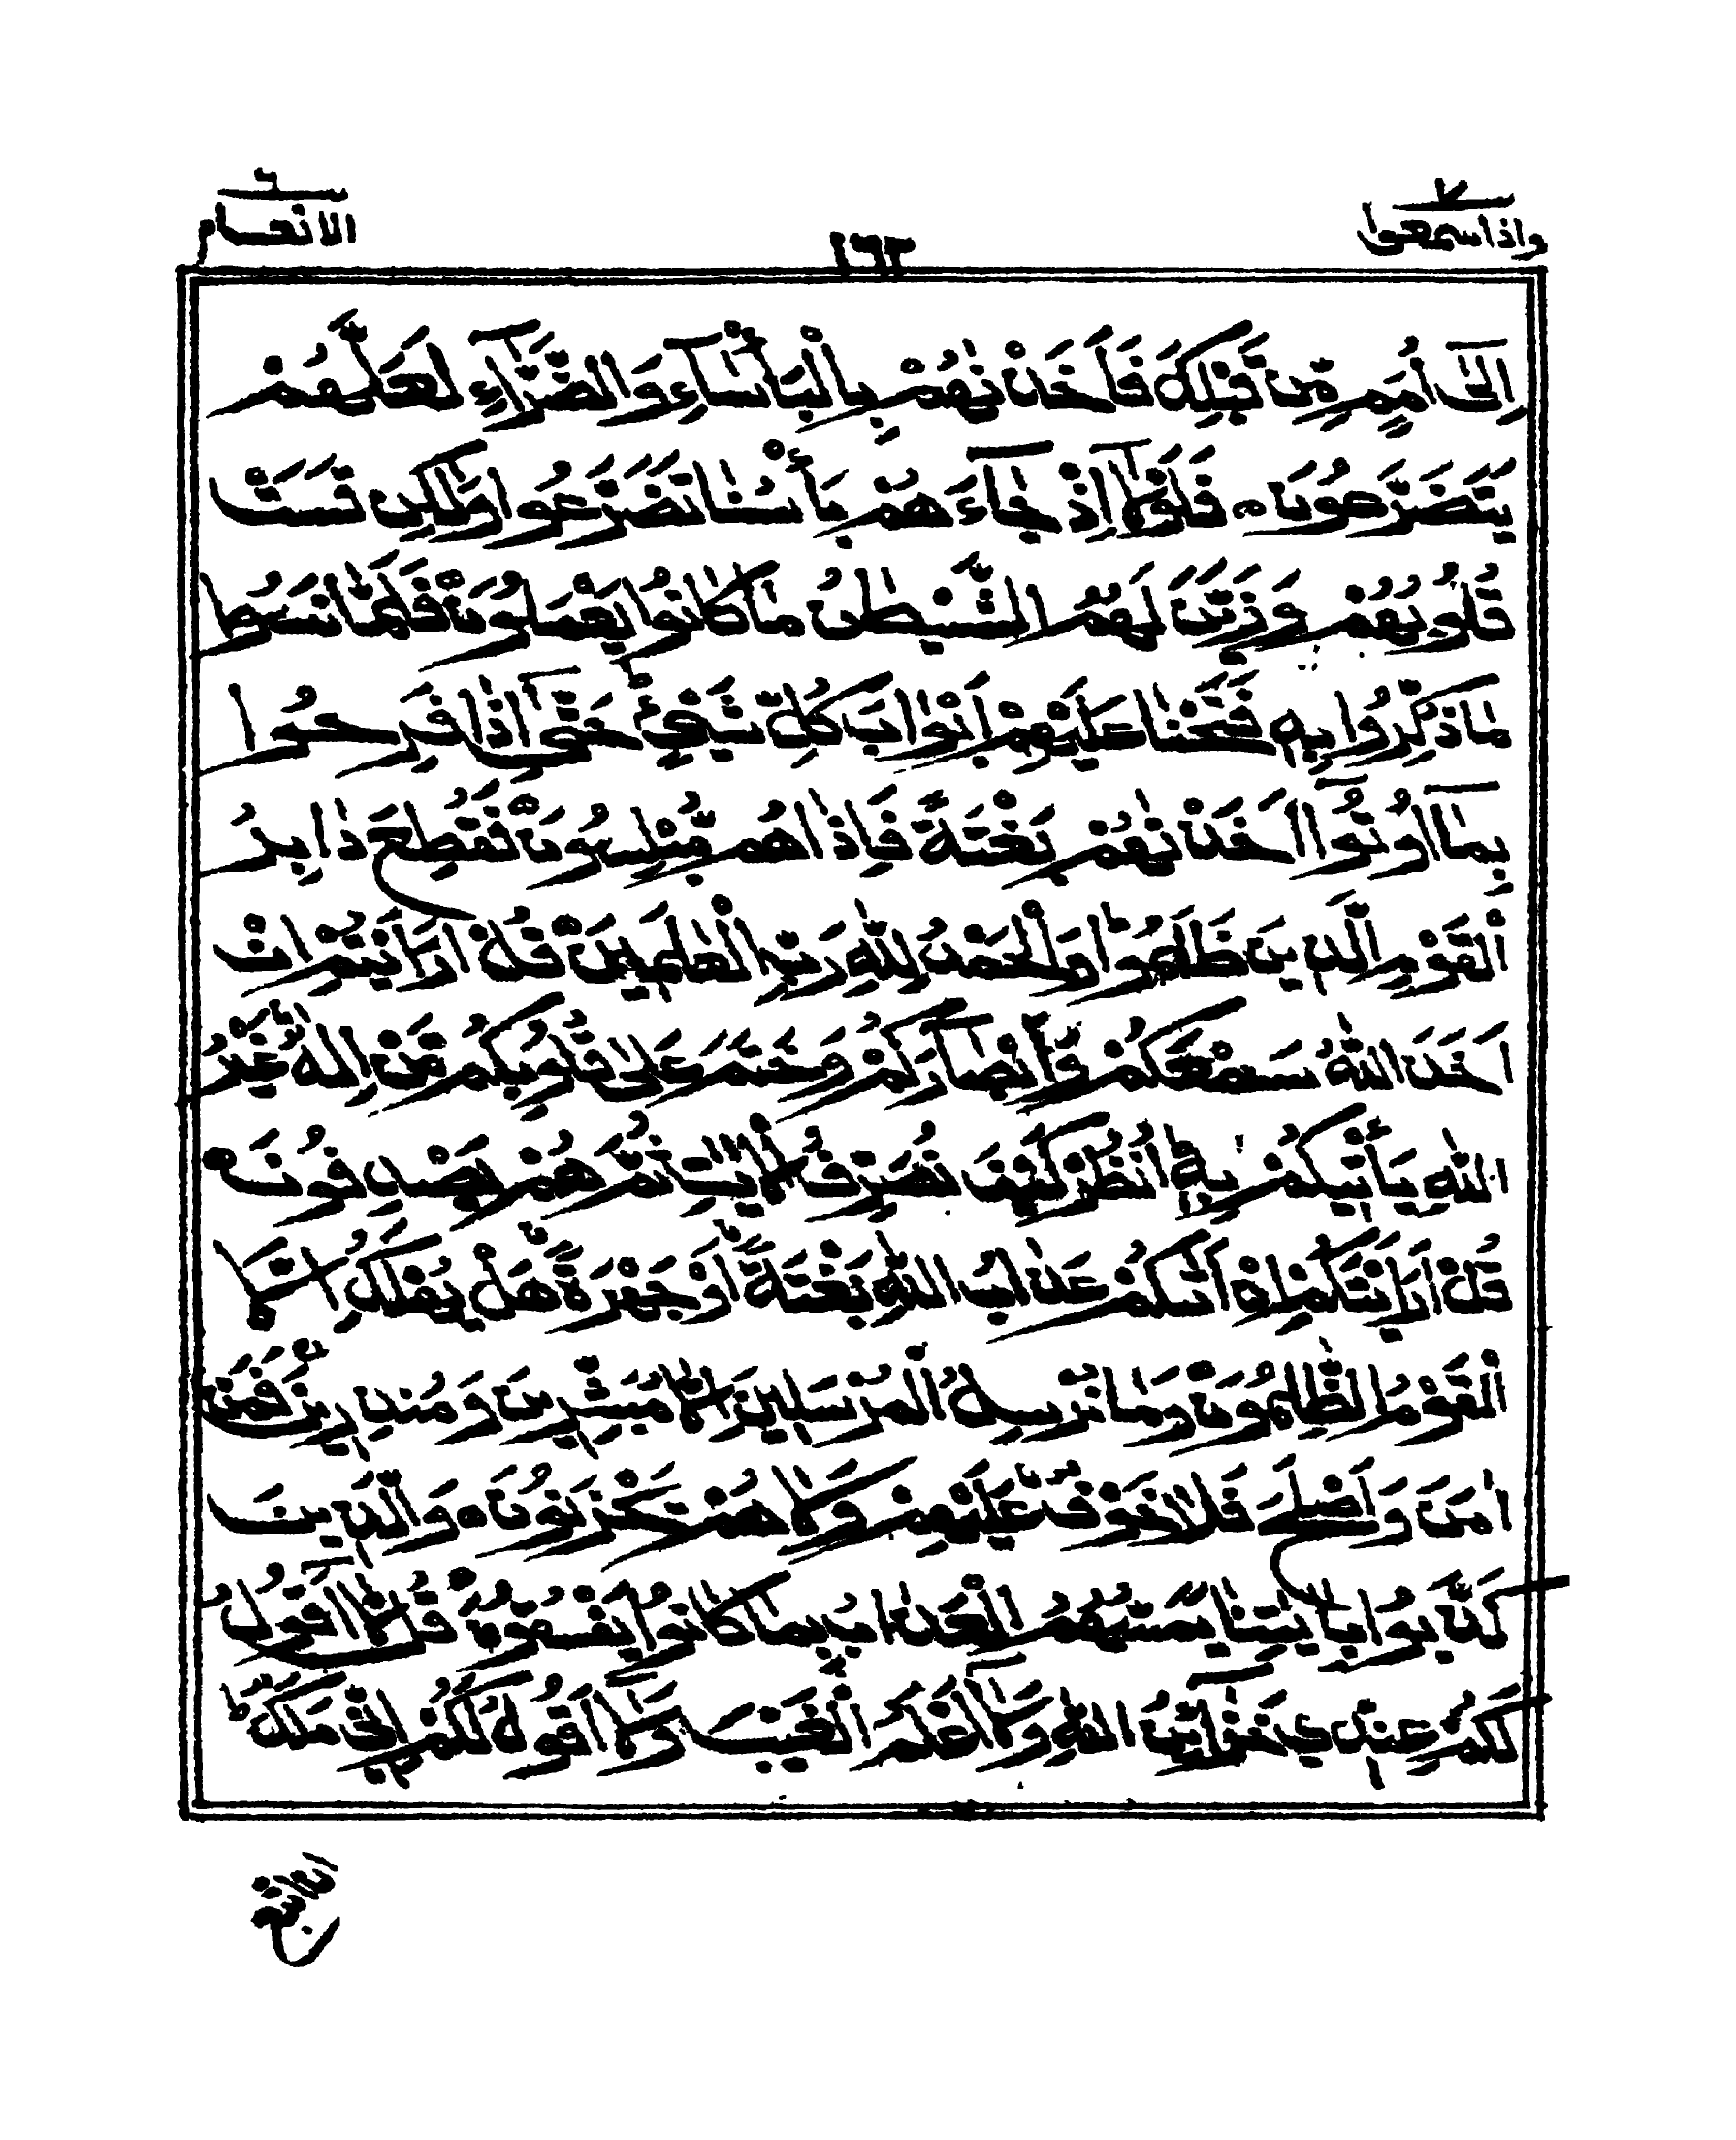 واذاسمعوا ٧
١٦٣
الانعام ٦
اِلٰۤى اُمَمٍ مِّنْ قَبْلِكَ فَاَخَذْنٰهُمْ بِالْبَاْسَآءِ وَالضَّرَّآءِ لَعَلَّهُمْ
يَتَضَرَّعُوْنَ ٥ فَلَوْلَاۤ اِذْ جَآءَهُمْ بَاْسُنَا تَضَرَّعُوْا وَلٰكِنْ قَسَتْ
قُلُوْبُهُمْ وَزَيَّنَ لَهُمُ الشَّيْطٰنُ مَا كَانُوْا يَعْمَلُوْنَ فَلَمَّا نَسُوْا
مَا ذُكِّرُوْا بِهٖ فَتَحْنَا عَلَيْهِمْ اَبْوَابَ كُلِّ شَيْءٍ حَتّٰۤى اِذَا فَرِحُوْا
بِمَاۤ اُوْتُوْۤا اَخَذْنٰهُمْ بَغْتَةً فَاِذَا هُمْ مُّبْلِسُوْنَ فَقُطِعَ دَابِرُ
الْقَوْمِ الَّذِيْنَ ظَلَمُوْا وَالْحَمْدُ لِلّٰهِ رَبِّ الْعٰلَمِيْنَ قُلْ اَرَاَيْتُمْ اِنْ
اَخَذَ اللّٰهُ سَمْعَكُمْ وَاَبْصَارَكُمْ وَخَتَمَ عَلٰى قُلُوْبِكُمْ مَّنْ اِلٰهٌ غَيْرُ
اللّٰهِ يَاْتِيْكُمْ بِهٖ اُنْظُرْ كَيْفَ نُصَرِّفُ الْاٰيٰتِ ثُمَّ هُمْ يَصْدِفُوْنَ ٥
قُلْ اَرَاَيْتَكُمْ اِنْ اَتٰىكُمْ عَذَابُ اللّٰهِ بَغْتَةً اَوْ جَهْرَةً هَلْ يُهْلَكُ اِلَّا
الْقَوْمُ الظّٰلِمُوْنَ وَمَا نُرْسِلُ الْمُرْسَلِيْنَ اِلَّا مُبَشِّرِيْنَ وَمُنْذِرِيْنَ فَمَنْ
اٰمَنَ وَاَصْلَحَ فَلَا خَوْفٌ عَلَيْهِمْ وَلَا هُمْ يَحْزَنُوْنَ ٥ وَالَّذِيْنَ
كَذَّبُوْا بِاٰيٰتِنَا يَمَسُّهُمُ الْعَذَابُ بِمَا كَانُوْا يَفْسُقُوْنَ قُلْ لَّاۤ اَقُوْلُ
لَكُمْ عِنْدِيْ خَزَآئِنُ اللّٰهِ وَلَاۤ اَعْلَمُ الْغَيْبَ وَلَاۤ اَقُوْلُ لَكُمْ اِنِّيْ مَلَكٌ